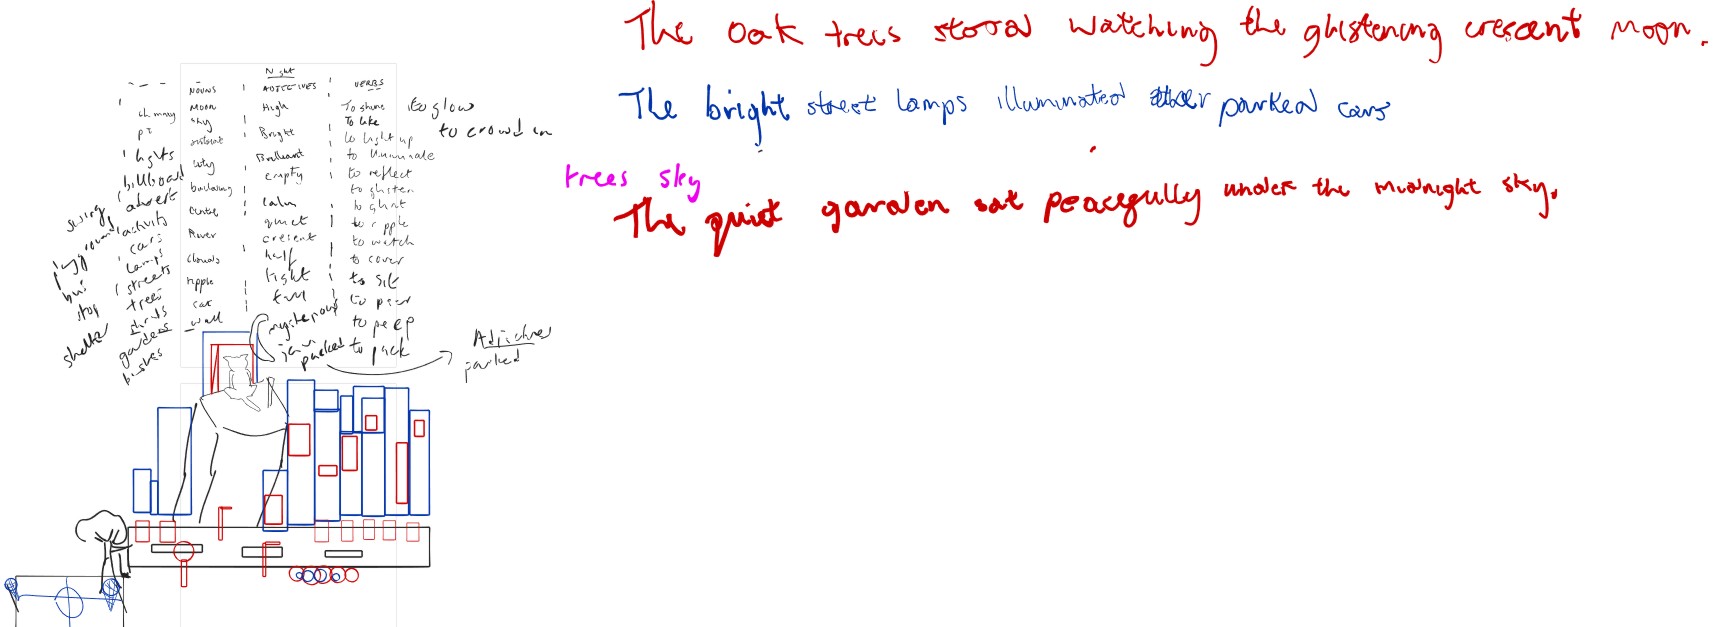 The oak trees stood watching the glistening crescent moon.
The bright street lamps illuminated parked cars
trees sky
The quiet garden sat peacefully under the midnight sky.
Night
NOUNS ADJECTIVES VERBS
Moon High To shine to glow
sky To like to crowd in
Bright to light up
city Brilliant to illuminate
empty to reflect
building to glisten
centre calm to glint
River quiet to ripple
cresent to watch
clouds half to cover
ripple light to sit
cat full to peer
wall mysterious to peep
parked to park
Adjectives
parked
chimney
lights
billboard
advert
activity
cars
lamps
streets
trees
gardens
bushes
swing
playground
bus
stop
shelter